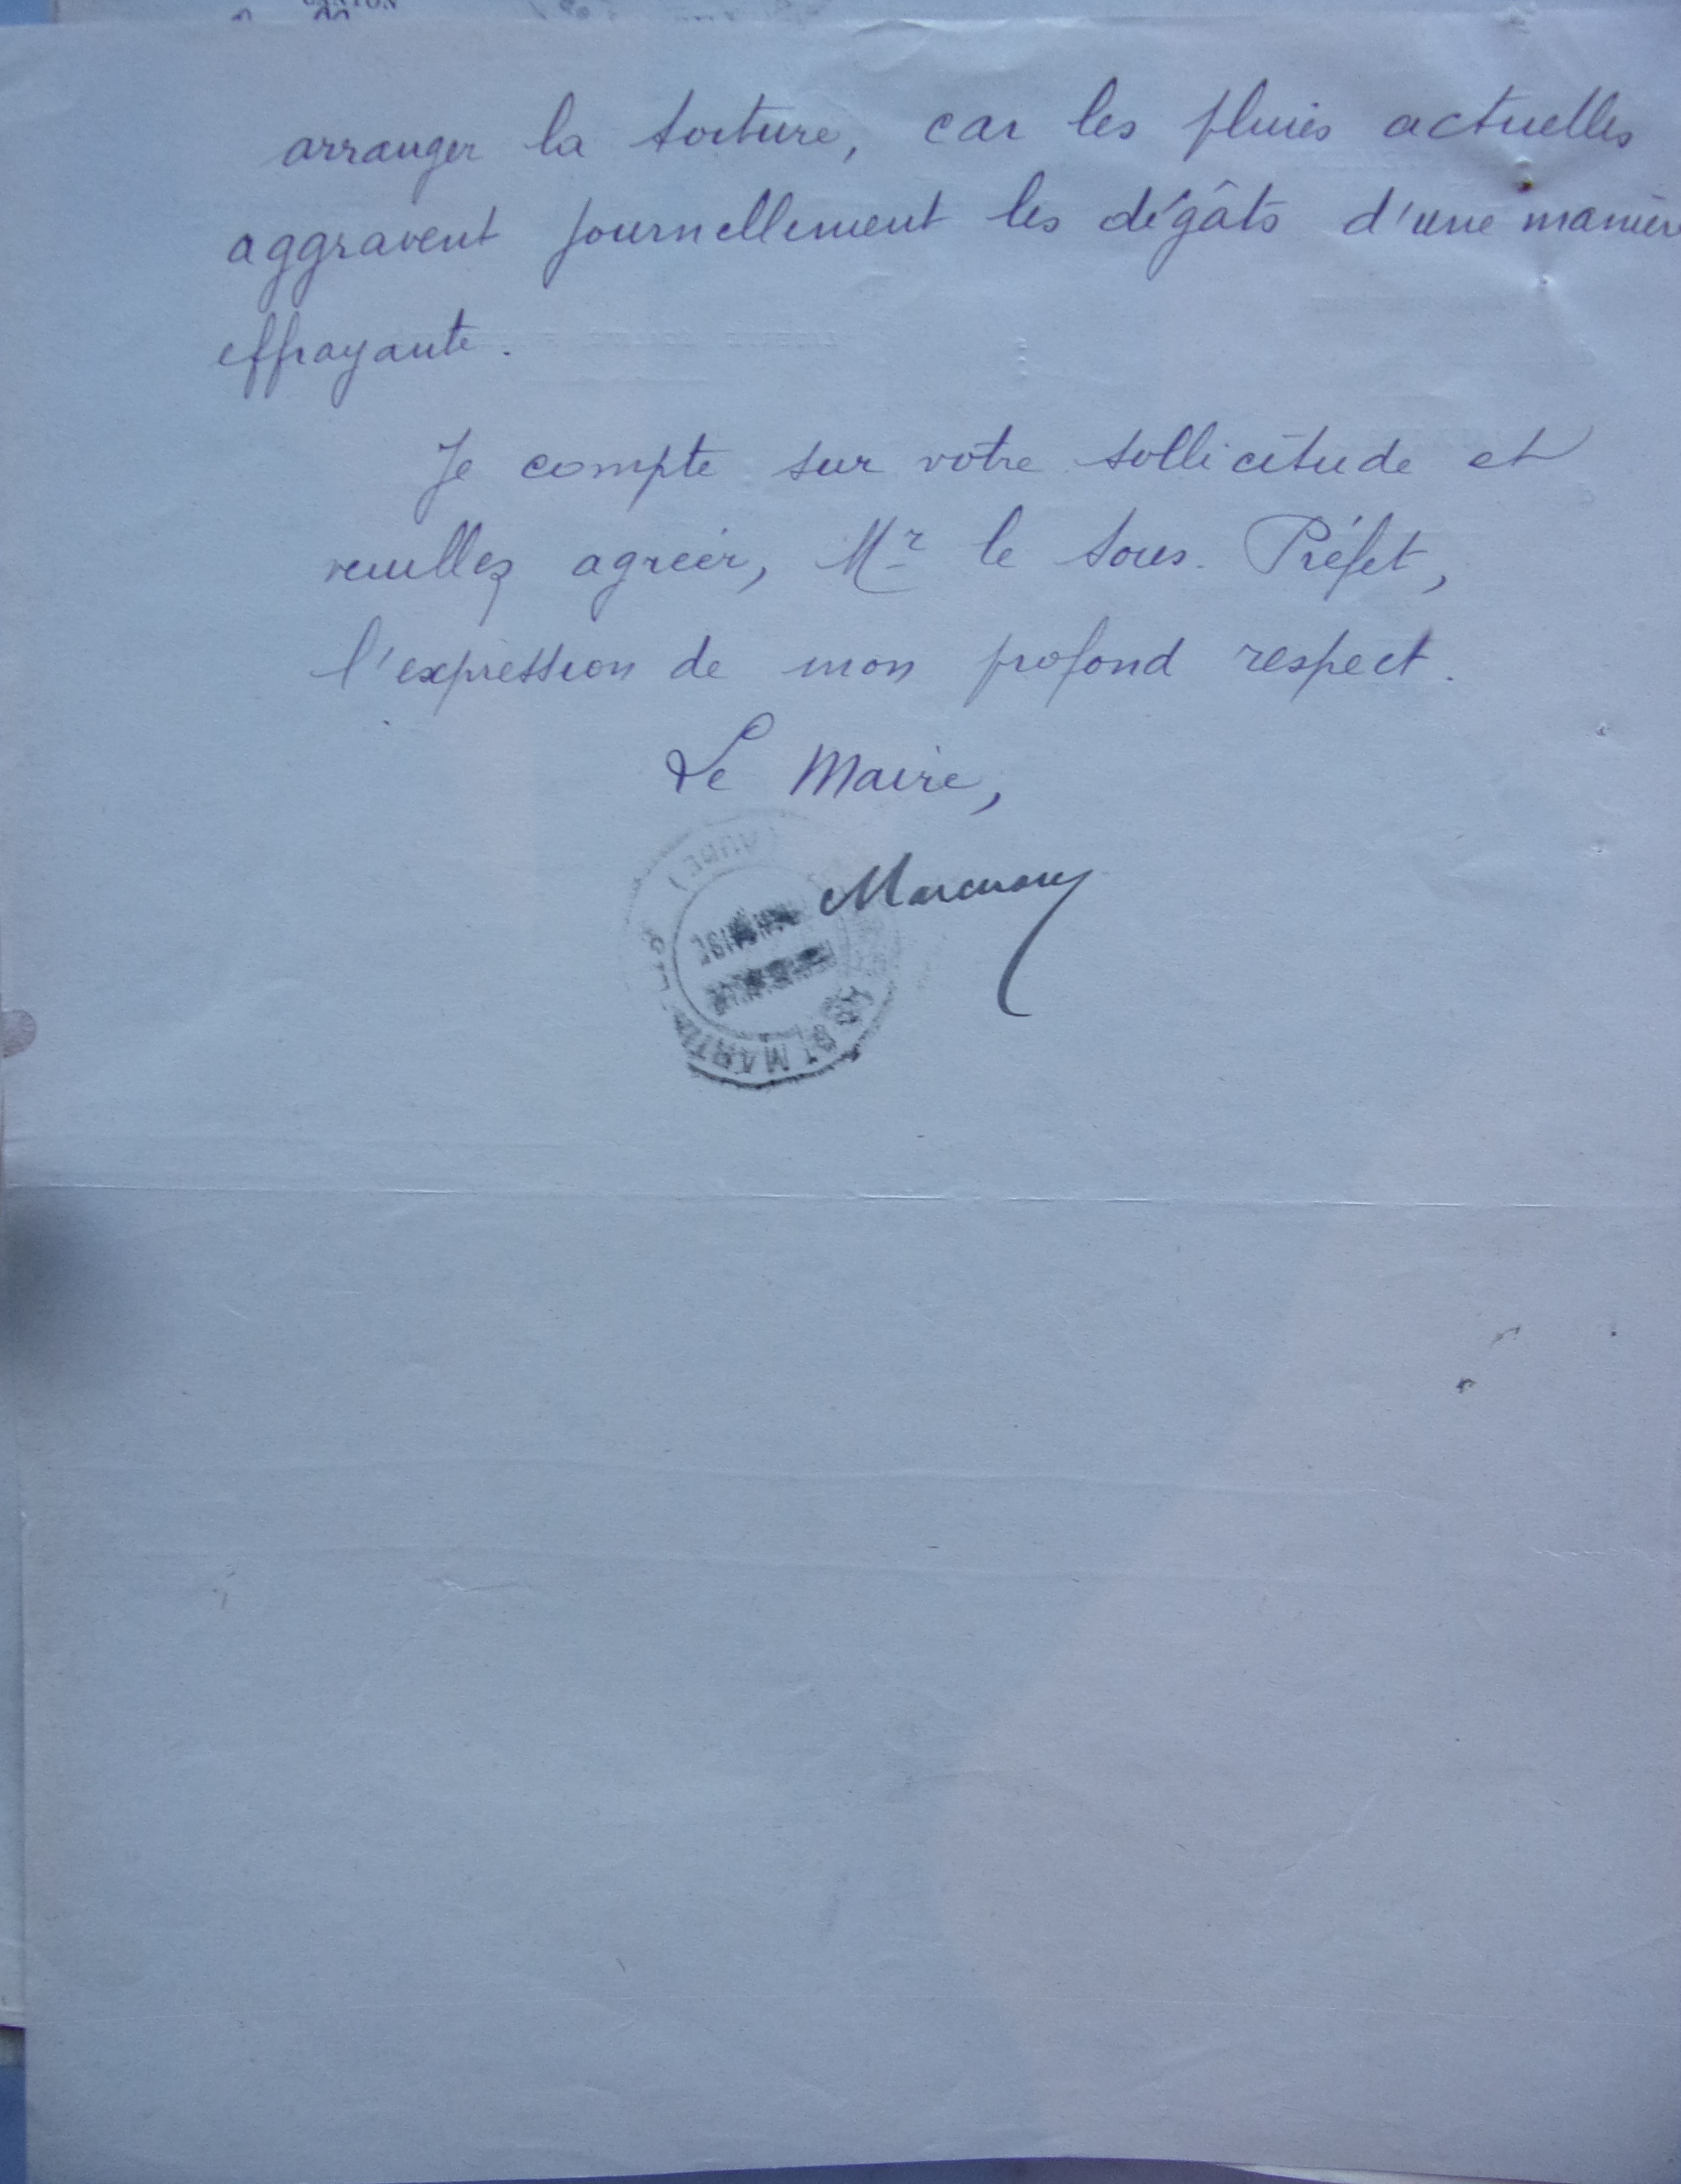 arranger la toiture, car les pluies actuelles
aggravent journellement les dégâts d'une manièr
effrayante.
Je compte sur votre sollicitude et
veuillez agréer, Mr le Sous-Préfet,
l'expression de mon profond respect.
Le Maire,
(AUDE)
ST MARTIN